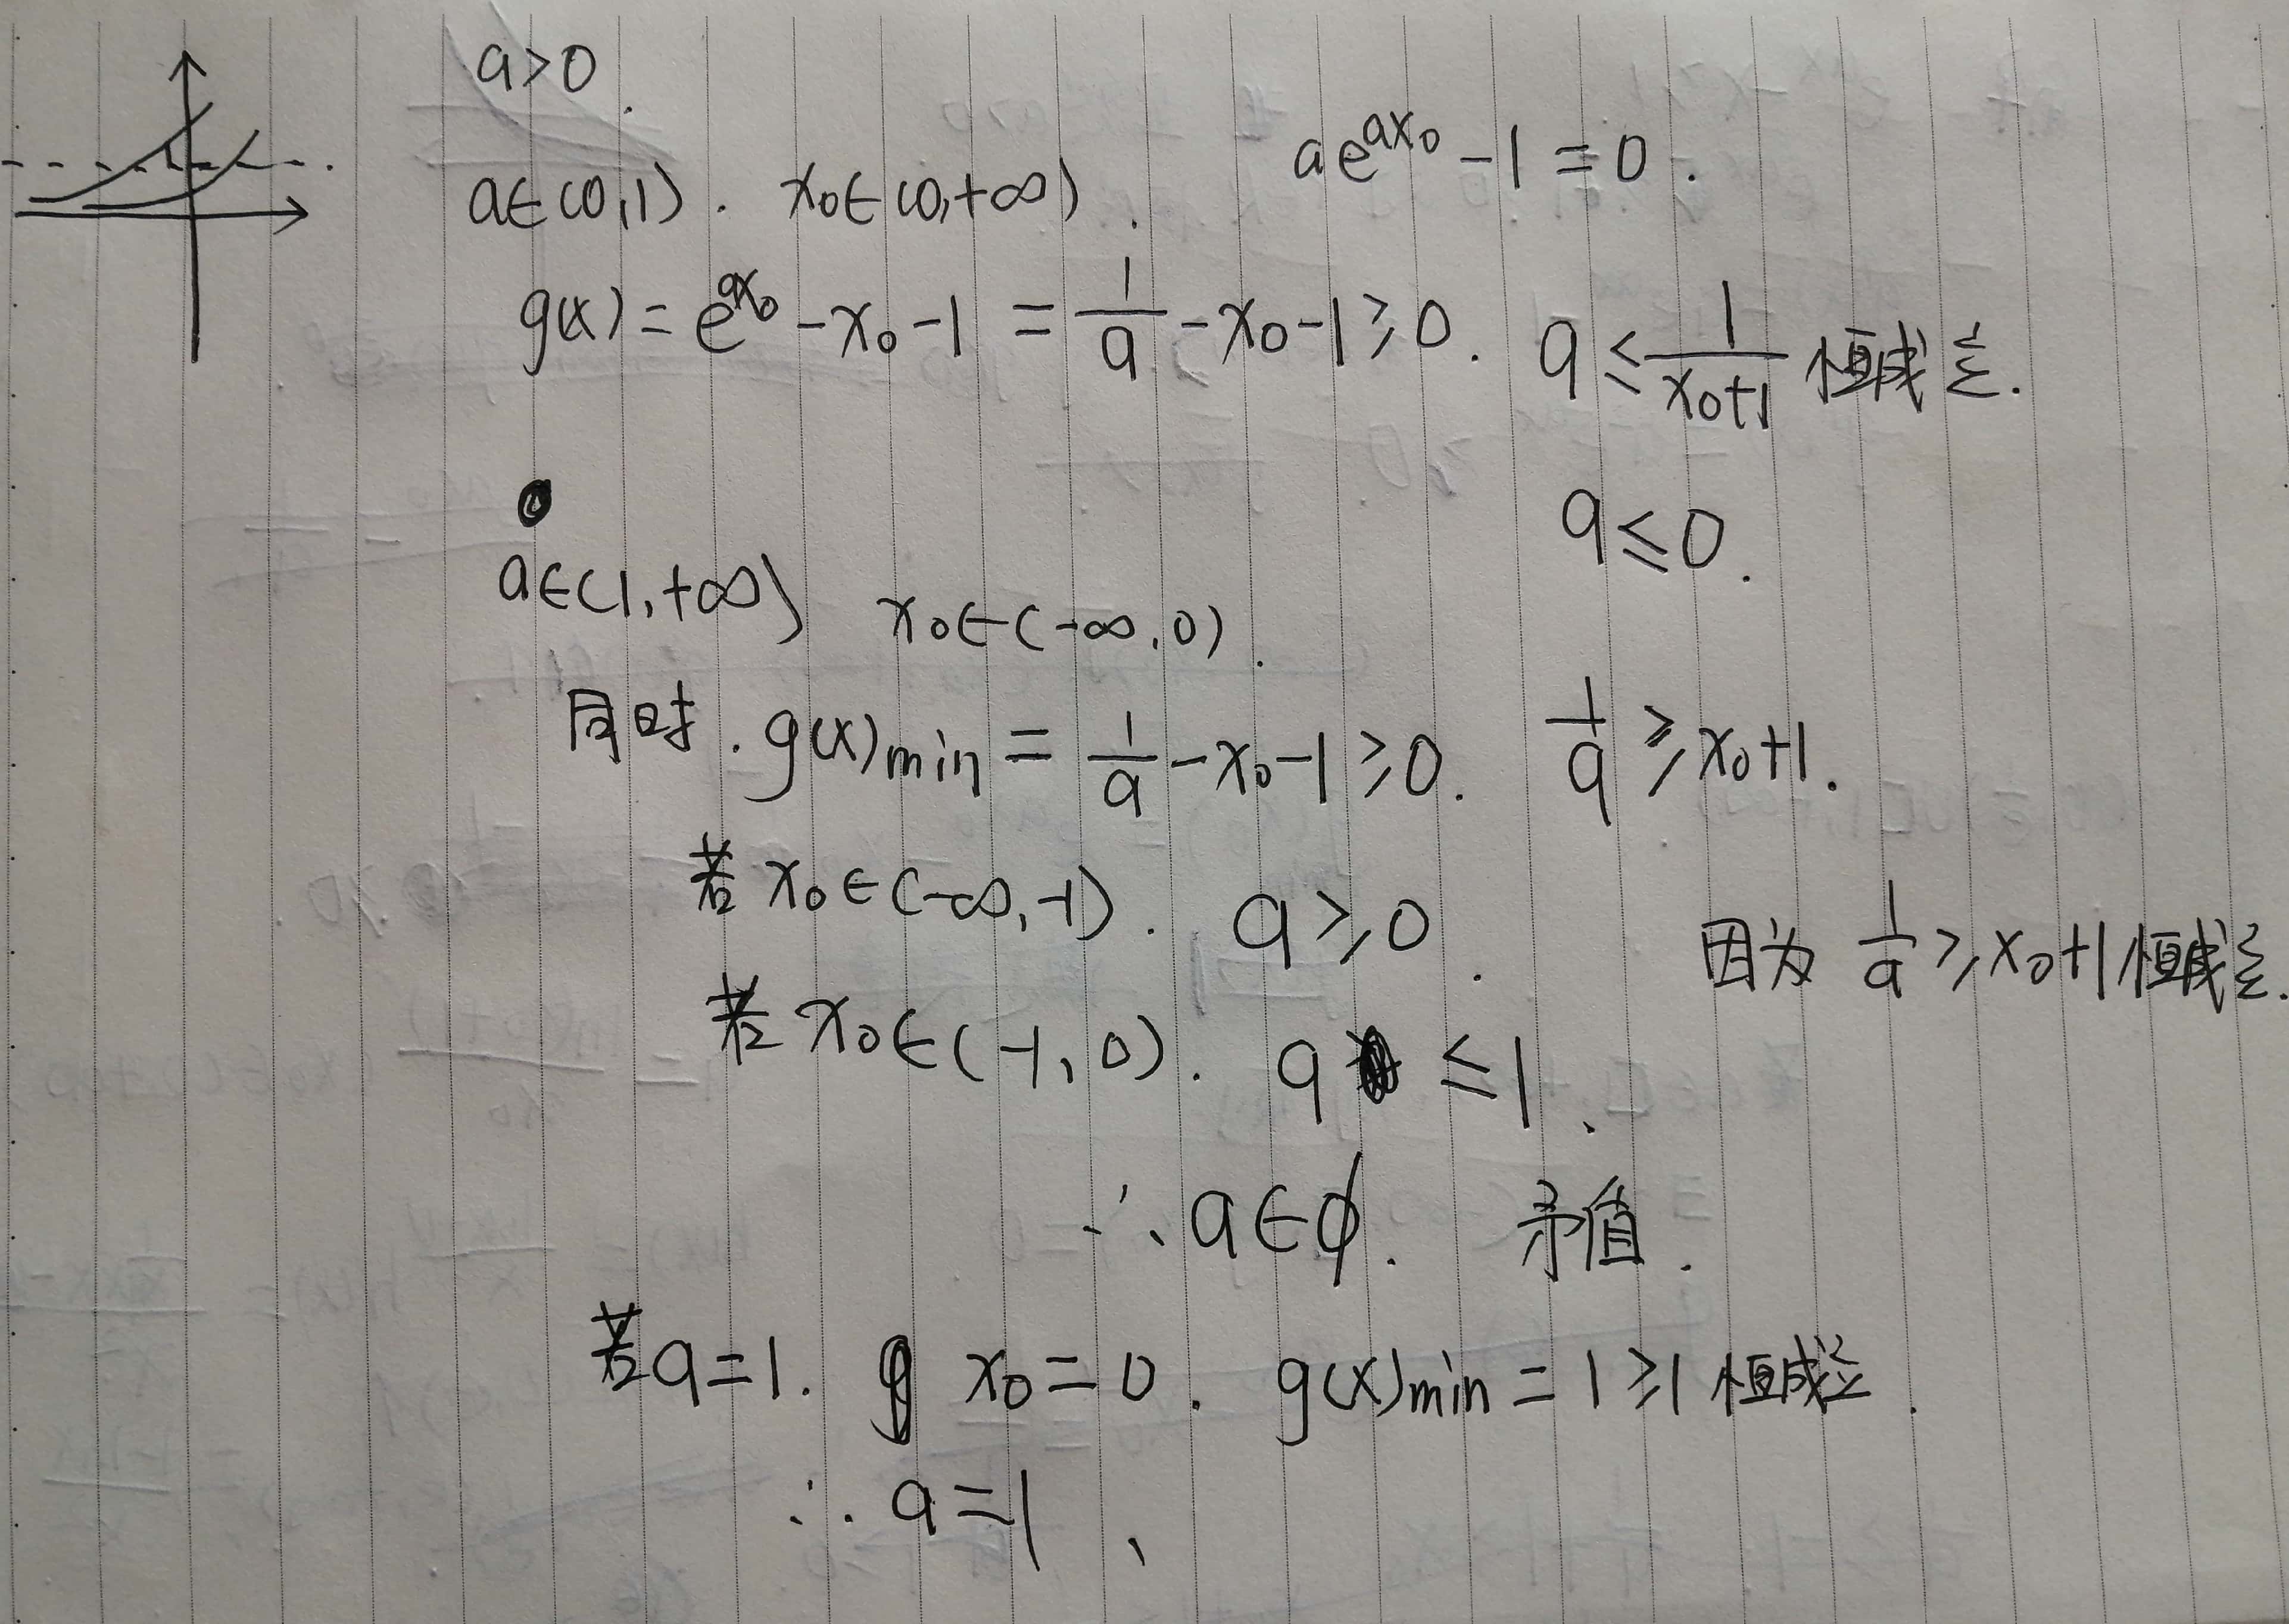 a>0.
a∈(0,1). x₀∈(0,+∞). ae^{ax₀}-1=0.
g(x)=e^{ax₀}-x₀-1=\frac{1}{a}-x₀-1≥0. a≤\frac{1}{x₀+1}恒成立.
a≤0.
a∈(1,+∞) x₀∈(-∞,0).
同时.g(x)min=\frac{1}{a}-x₀-1≥0. \frac{1}{a}≥x₀+1.
若x₀∈(-∞,-1). a≥0.
因为\frac{1}{a}≥x₀+1恒成立.
若x₀∈(-1,0). a≤1.
∴a∈ϕ. 矛盾.
若a=1. x₀=0. g(x)min=1≥1恒成立.
∴a=1.